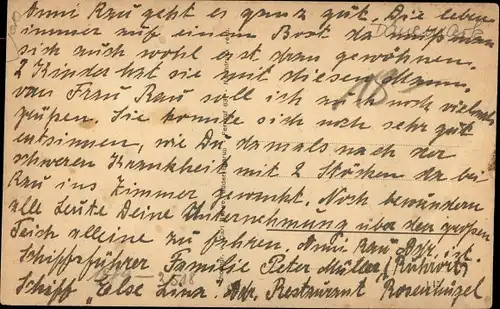 Anni Rau geht es ganz gut. Die leben
immer auf einem Boot da muß man
sich auch wohl erst dran gewöhnen.
2 Kinder hat sie mit diesem Mann.
von Frau Rau soll ich auch noch vielmals
grüßen. Sie konnte sich noch sehr gut
entsinnen, wie Du damals nach der
schweren Krankheit mit 2 Stöcken da bei
Rau ins Zimmer gewankt. Noch bewundern
alle Leute Deine Unternehmung über den großen
Teich alleine zu fahren. Anni Rau Adr. ist.
Schiffsführer Familie Peter Müller (Ruhrort)
Schiff "Else Lina". Adr. Restaurant Rosenhügel